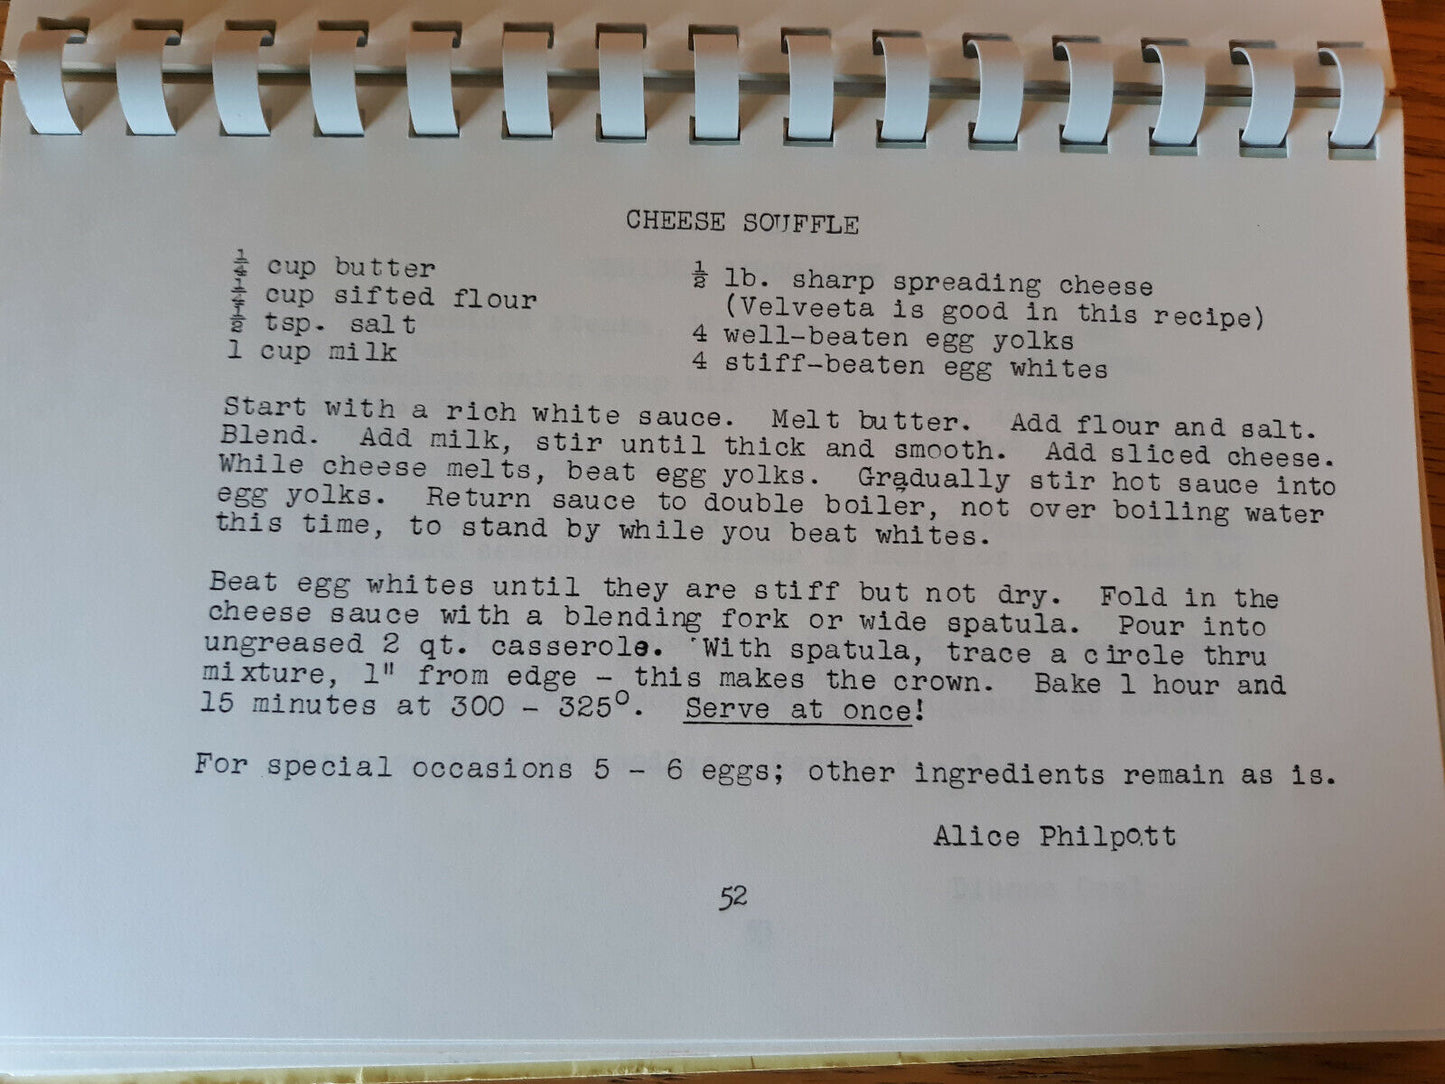 CHEESE SOUFFLE
¼ cup butter
¼ cup sifted flour
½ tsp. salt
1 cup milk
½ lb. sharp spreading cheese
(Velveeta is good in this recipe)
4 well-beaten egg yolks
4 stiff-beaten egg whites
Start with a rich white sauce. Melt butter. Add flour and salt.
Blend. Add milk, stir until thick and smooth. Add sliced cheese.
While cheese melts, beat egg yolks. Gradually stir hot sauce into
egg yolks. Return sauce to double boiler, not over boiling water
this time, to stand by while you beat whites.
Beat egg whites until they are stiff but not dry. Fold in the
cheese sauce with a blending fork or wide spatula. Pour into
ungreased 2 qt. casserole. With spatula, trace a circle thru
mixture, 1" from edge - this makes the crown. Bake 1 hour and
15 minutes at 300 - 325°. Serve at once!
For special occasions 5 - 6 eggs; other ingredients remain as is.
Alice Philpott
52